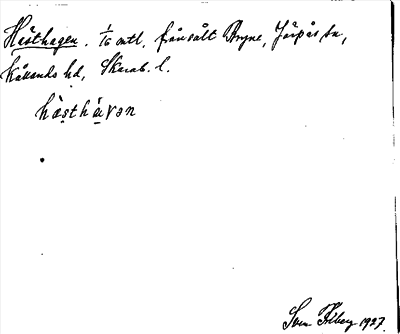 Hästhagen. 1/16 mtl, frånsålt Bryne, Järpås sn,
Kållands hd, Skarab. l.
hàsthàvən
Sven Ekberg 1927.